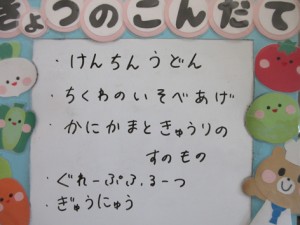 きょうのこんだて
・けんちんうどん
・ちくわのいそべあげ
・かにかまときゅうりの
すのもの
・ぐれーぷふ.るーつ
・ぎゅうにゅう